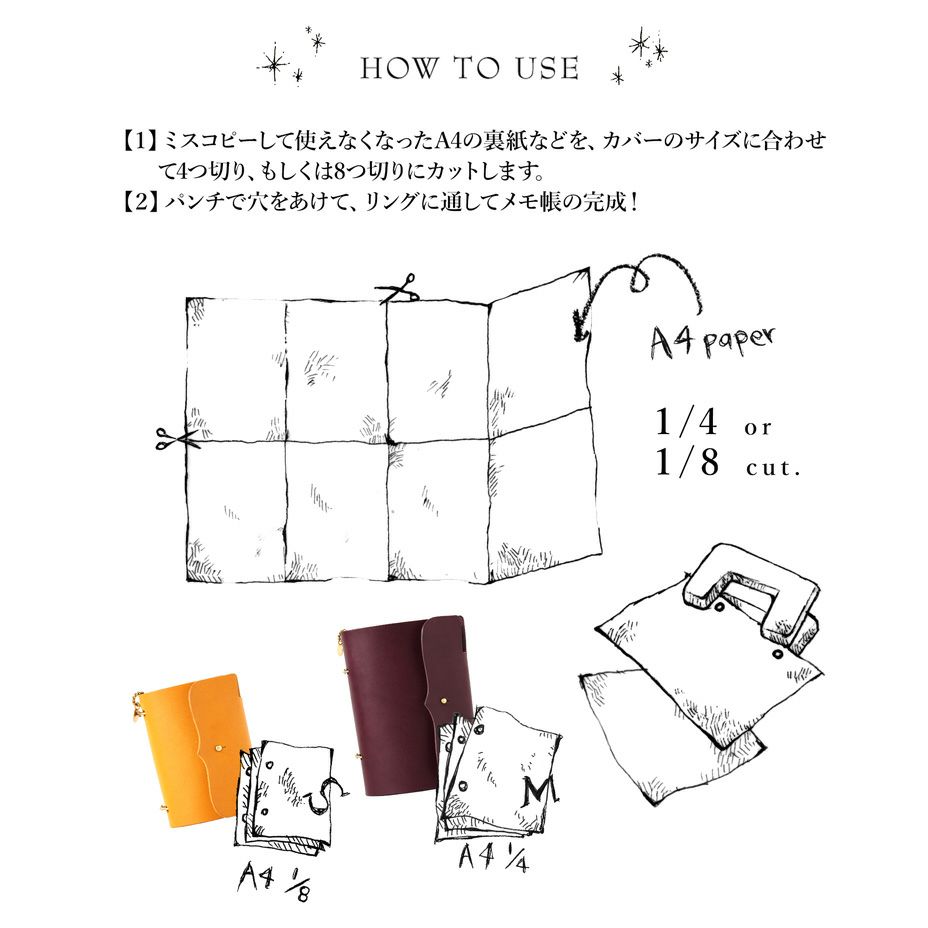 HOW TO USE
【1】ミスコピーして使えなくなったA4の裏紙などを、カバーのサイズに合わせ
て4つ切り、もしくは8つ切りにカットします。
【2】パンチで穴をあけて、リングに通してメモ帳の完成！
A4 paper
1/4 or
1/8 cut.
S
M
A4 1/8
A4 1/4